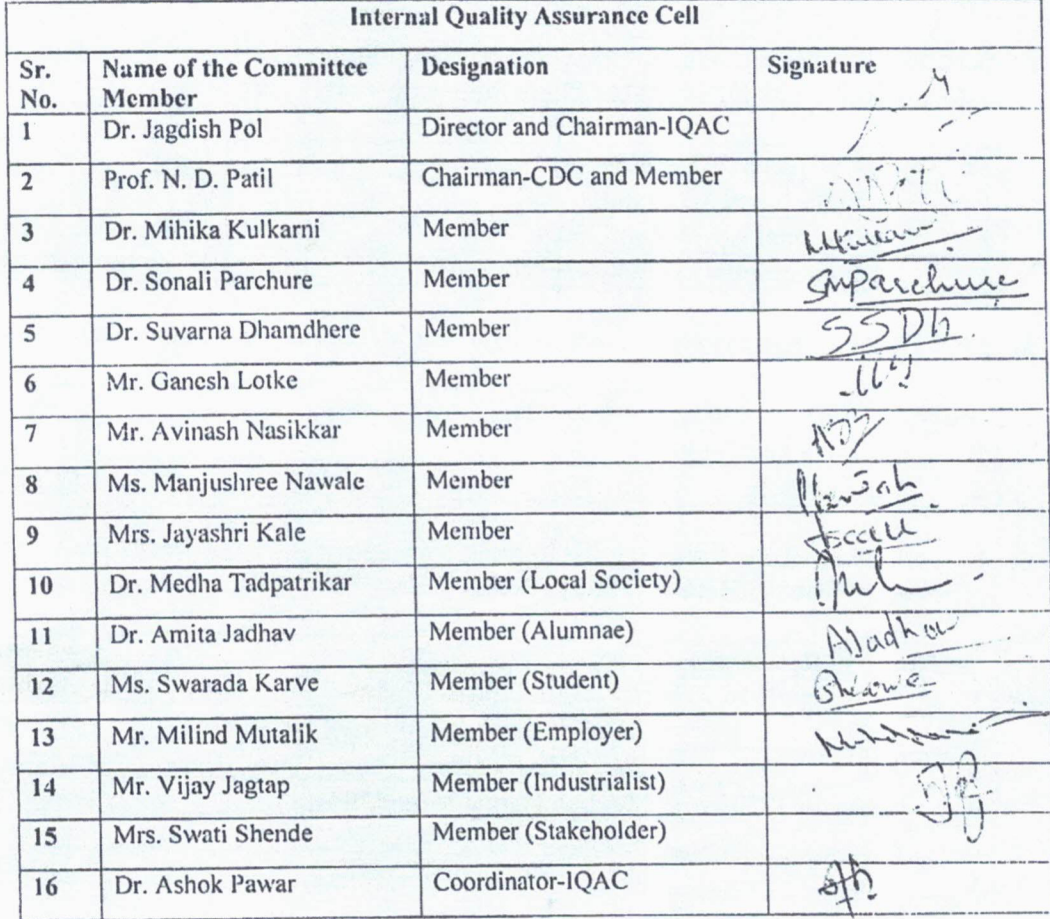 Internal Quality Assurance Cell
Sr. No. Name of the Committee Member Designation Signature
1 Dr. Jagdish Pol Director and Chairman-IQAC
2 Prof. N. D. Patil Chairman-CDC and Member
3 Dr. Mihika Kulkarni Member
4 Dr. Sonali Parchure Member SMParchure
5 Dr. Suvarna Dhamdhere Member SSDh
6 Mr. Ganesh Lotke Member
7 Mr. Avinash Nasikkar Member
8 Ms. Manjushree Nawale Member
9 Mrs. Jayashri Kale Member
10 Dr. Medha Tadpatrikar Member (Local Society)
11 Dr. Amita Jadhav Member (Alumnae) AJadhav
12 Ms. Swarada Karve Member (Student)
13 Mr. Milind Mutalik Member (Employer)
14 Mr. Vijay Jagtap Member (Industrialist)
15 Mrs. Swati Shende Member (Stakeholder)
16 Dr. Ashok Pawar Coordinator-IQAC